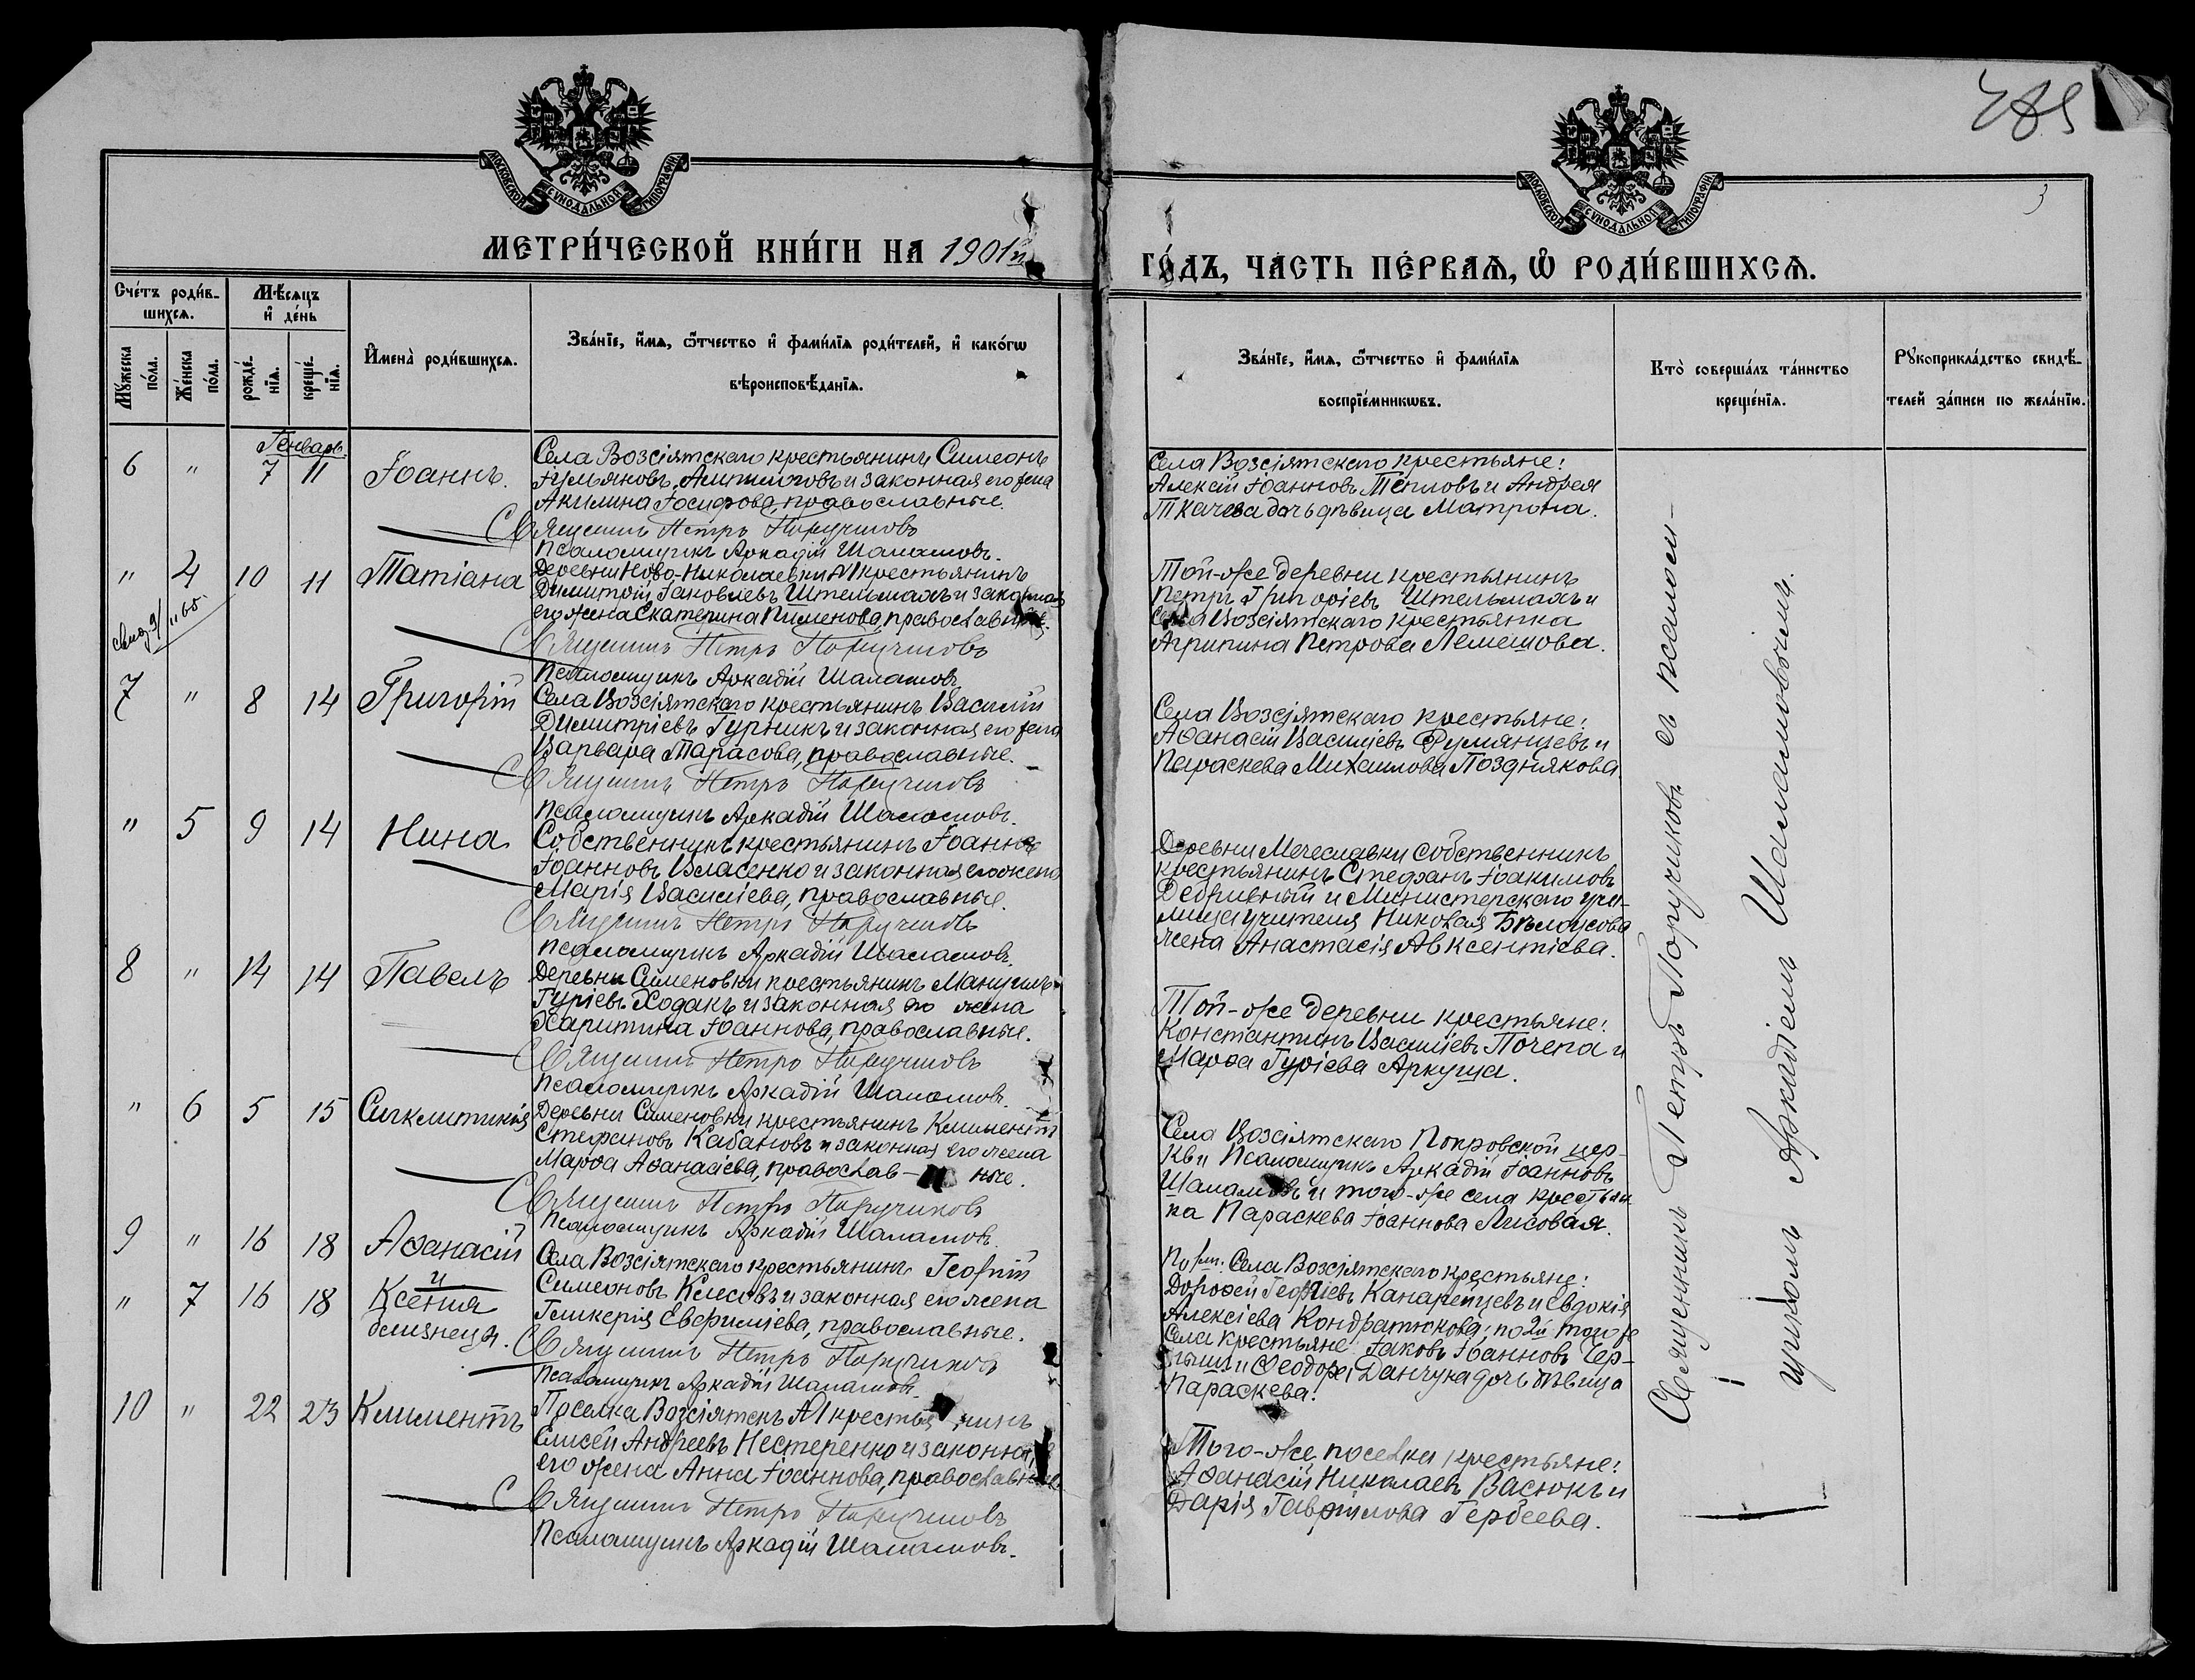 485
3
МОСКОВСКОЙ СѴНОДАЛЬНОЙ ТИПОГРАФІИ
МОСКОВСКОЙ СѴНОДАЛЬНОЙ ТИПОГРАФІИ
МЕТРИ́ЧЕСКОЙ КНИ́ГИ НА 1901й
ГО́ДЪ, ЧА́СТЬ ПЕ́РВАѦ, Ѽ РОДИ́ВШИХСѦ.
Сче́тъ роди́в-
шихсѧ.
Мѣ́сѧцъ
и҆ де́нь
Мꙋ́жеска
по́ла.
Же́нска
по́ла.
рожде́-
нїѧ.
креще́-
нїѧ.
И҆мена̀ роди́вшихсѧ.
Зва́нїе, и҆́мѧ, ѻ҆́тчество и҆ фами́лїѧ роди́телей, и҆ како́гѡ
вѣроисповѣ́данїѧ.
Зва́нїе, и҆́мѧ, ѻ҆́тчество и҆ фами́лїѧ
воспрїе́мникѡвъ.
Кто̀ соверша́лъ та́инство
креще́нїѧ.
Рꙋкоприкла́дство свидѣ́-
телей за́писи по жела́нїю.
Генварь.
6 " 7 11 Іоаннъ.
Села Возсіятскаго крестьянинъ Симеонъ
Іульяновъ Антиповъ и законная его жена
Акилина Іосифова, православные.
Священникъ Петръ Поручиковъ
Псаломщикъ Аркадій Шаламовъ.
Села Возсіятскаго крестьяне:
Алексій Іоанновъ Тепловъ и Андрея
Ткачева дочь дѣвица Матрона.
" 4 10 11 Татіана
Деревни Ново-Николаевки №1 крестьянинъ
Димитрій Іаковлевъ Штельмахъ и законная
его жена Екатерина Пименова, православные.
Священникъ Петръ Поручиковъ
Псаломщикъ Аркадій Шаламовъ
Той-же деревни крестьянинъ
Петръ Григоріевъ Штельмахъ и
Села Возсіятскаго крестьянка
Агрипина Петрова Лемешова.
7 " 8 14 Григорій
Села Возсіятскаго крестьянинъ Василій
Димитріевъ Гурникъ и законная его жена
Варвара Тарасова, православные.
Священникъ Петръ Поручиковъ
Псаломщикъ Аркадій Шаламовъ.
Села Возсіятскаго крестьяне:
Аѳанасій Василіевъ Румянцевъ и
Параскева Михаилова Позднякова.
" 5 9 14 Нина
Собственникъ крестьянинъ Іоаннъ
Іоанновъ Власенко и законная его жена
Марія Василіева, православные.
Священникъ Петръ Поручиковъ
Псаломщикъ Аркадій Шаламовъ.
Деревни Мечеславки собственникъ
крестьянинъ Стефанъ Іоакимовъ
Дебривный и Министерскаго учи-
лища учителя Николая Бѣлоусова
жена Анастасія Авксентіева.
8 " 14 14 Павелъ
Деревни Сименовки крестьянинъ Мануилъ
Гуріевъ Ходакъ и законная его жена
Харитина Іоаннова, православные.
Священникъ Петръ Поручиковъ
Псаломщикъ Аркадій Шаламовъ.
Той-же деревни крестьяне:
Константинъ Василіевъ Почепа и
Марѳа Гуріева Аркуша.
" 6 5 15 Сигклитикія
Деревни Сименовки крестьянинъ Климентъ
Стефановъ Кабановъ и законная его жена
Марѳа Аѳанасіева, православ- ные.
Священникъ Петръ Поручиковъ
Псаломщикъ Аркадій Шаламовъ.
Села Возсіятскаго Покровской цер-
кви Псаломщикъ Аркадій Іоанновъ
Шаламовъ и того-же села крестьян
ка Параскева Іоаннова Лисовая.
9 " 16 18 Аѳанасій
и
" 7 16 18 Ксенія
близнецы.
Села Возсіятскаго крестьянинъ Георгій
Симеоновъ Клесовъ и законная его жена
Гликерія Евфиміева, православные.
Священникъ Петръ Поручиковъ
Псаломщикъ Аркадій Шаламовъ.
Села Возсіятскаго крестьяне:
Дороѳей Георгіевъ Канарейцевъ и Евдокія
Алексіева Кондратюкова; по 2й того же
села крестьяне Іаковъ Іоанновъ Чер-
и Ѳеодора Данчука дочь дѣвица
Параскева.
10 " 22 23 Климентъ
Поселка Возсіятскъ №1 крестьянинъ
Елисей Андреевъ Нестеренко и законная
его жена Анна Іоаннова, православные
Священникъ Петръ Поручиковъ
Псаломщикъ Аркадій Шаламовъ.
Того-же поселка крестьяне:
Аѳанасій Николаевъ Васюкъ и
Дарія Гавріилова Гербеева.
Священникъ Петръ Поручиковъ съ псалом-
щикомъ Аркадіемъ Шаламовымъ.